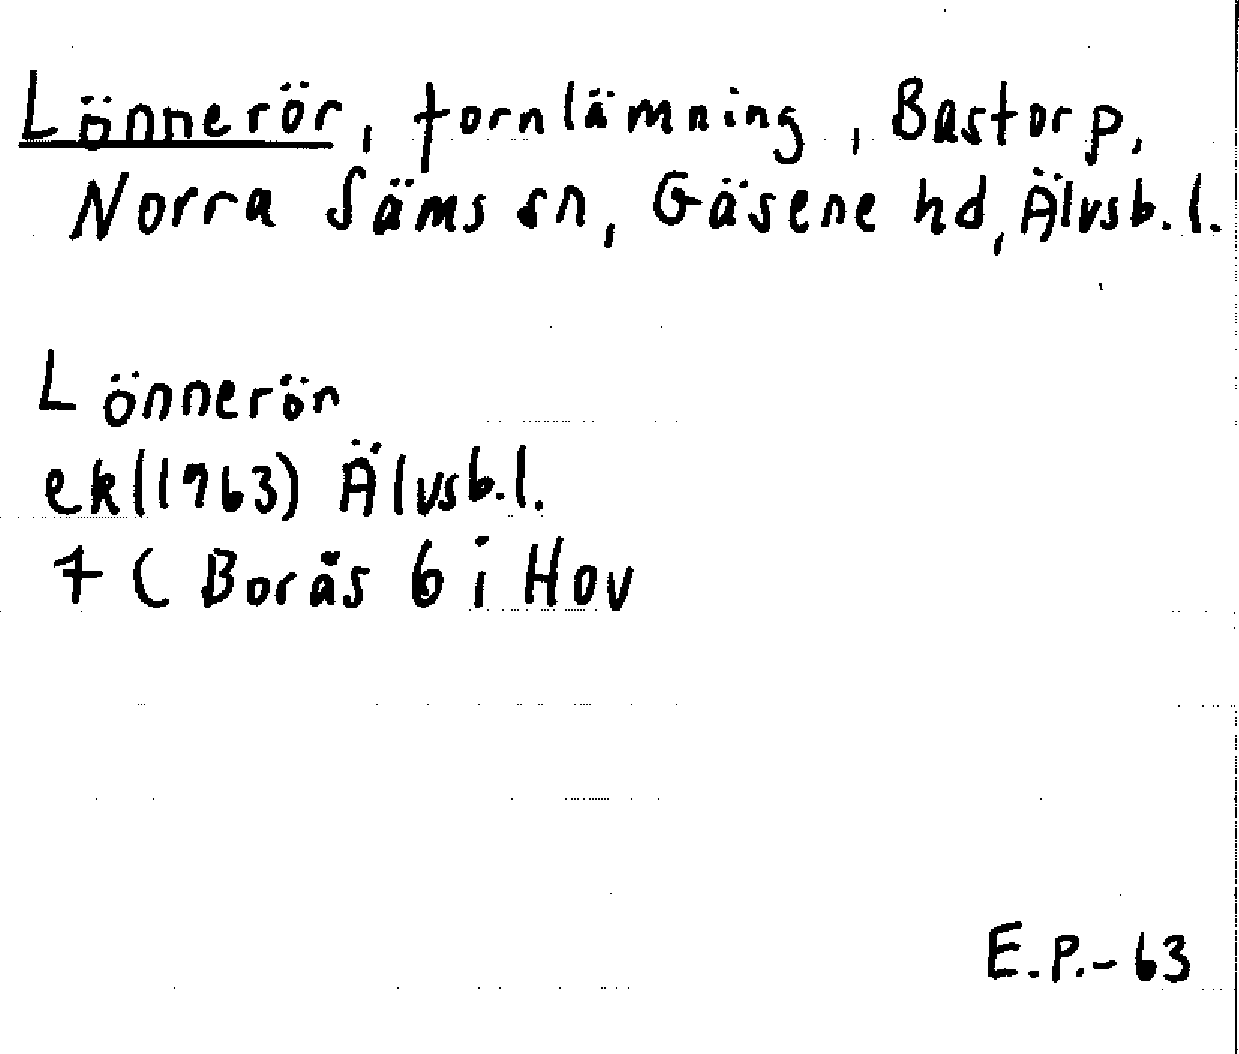 Lönnerör, fornlämning, Bastorp,
Norra Säms sn, Gäsene hd, Älvsb. l.
Lönnerör
ek (1963) Älvsb. l.
7 C Borås 6 i Hov
E.P.-63